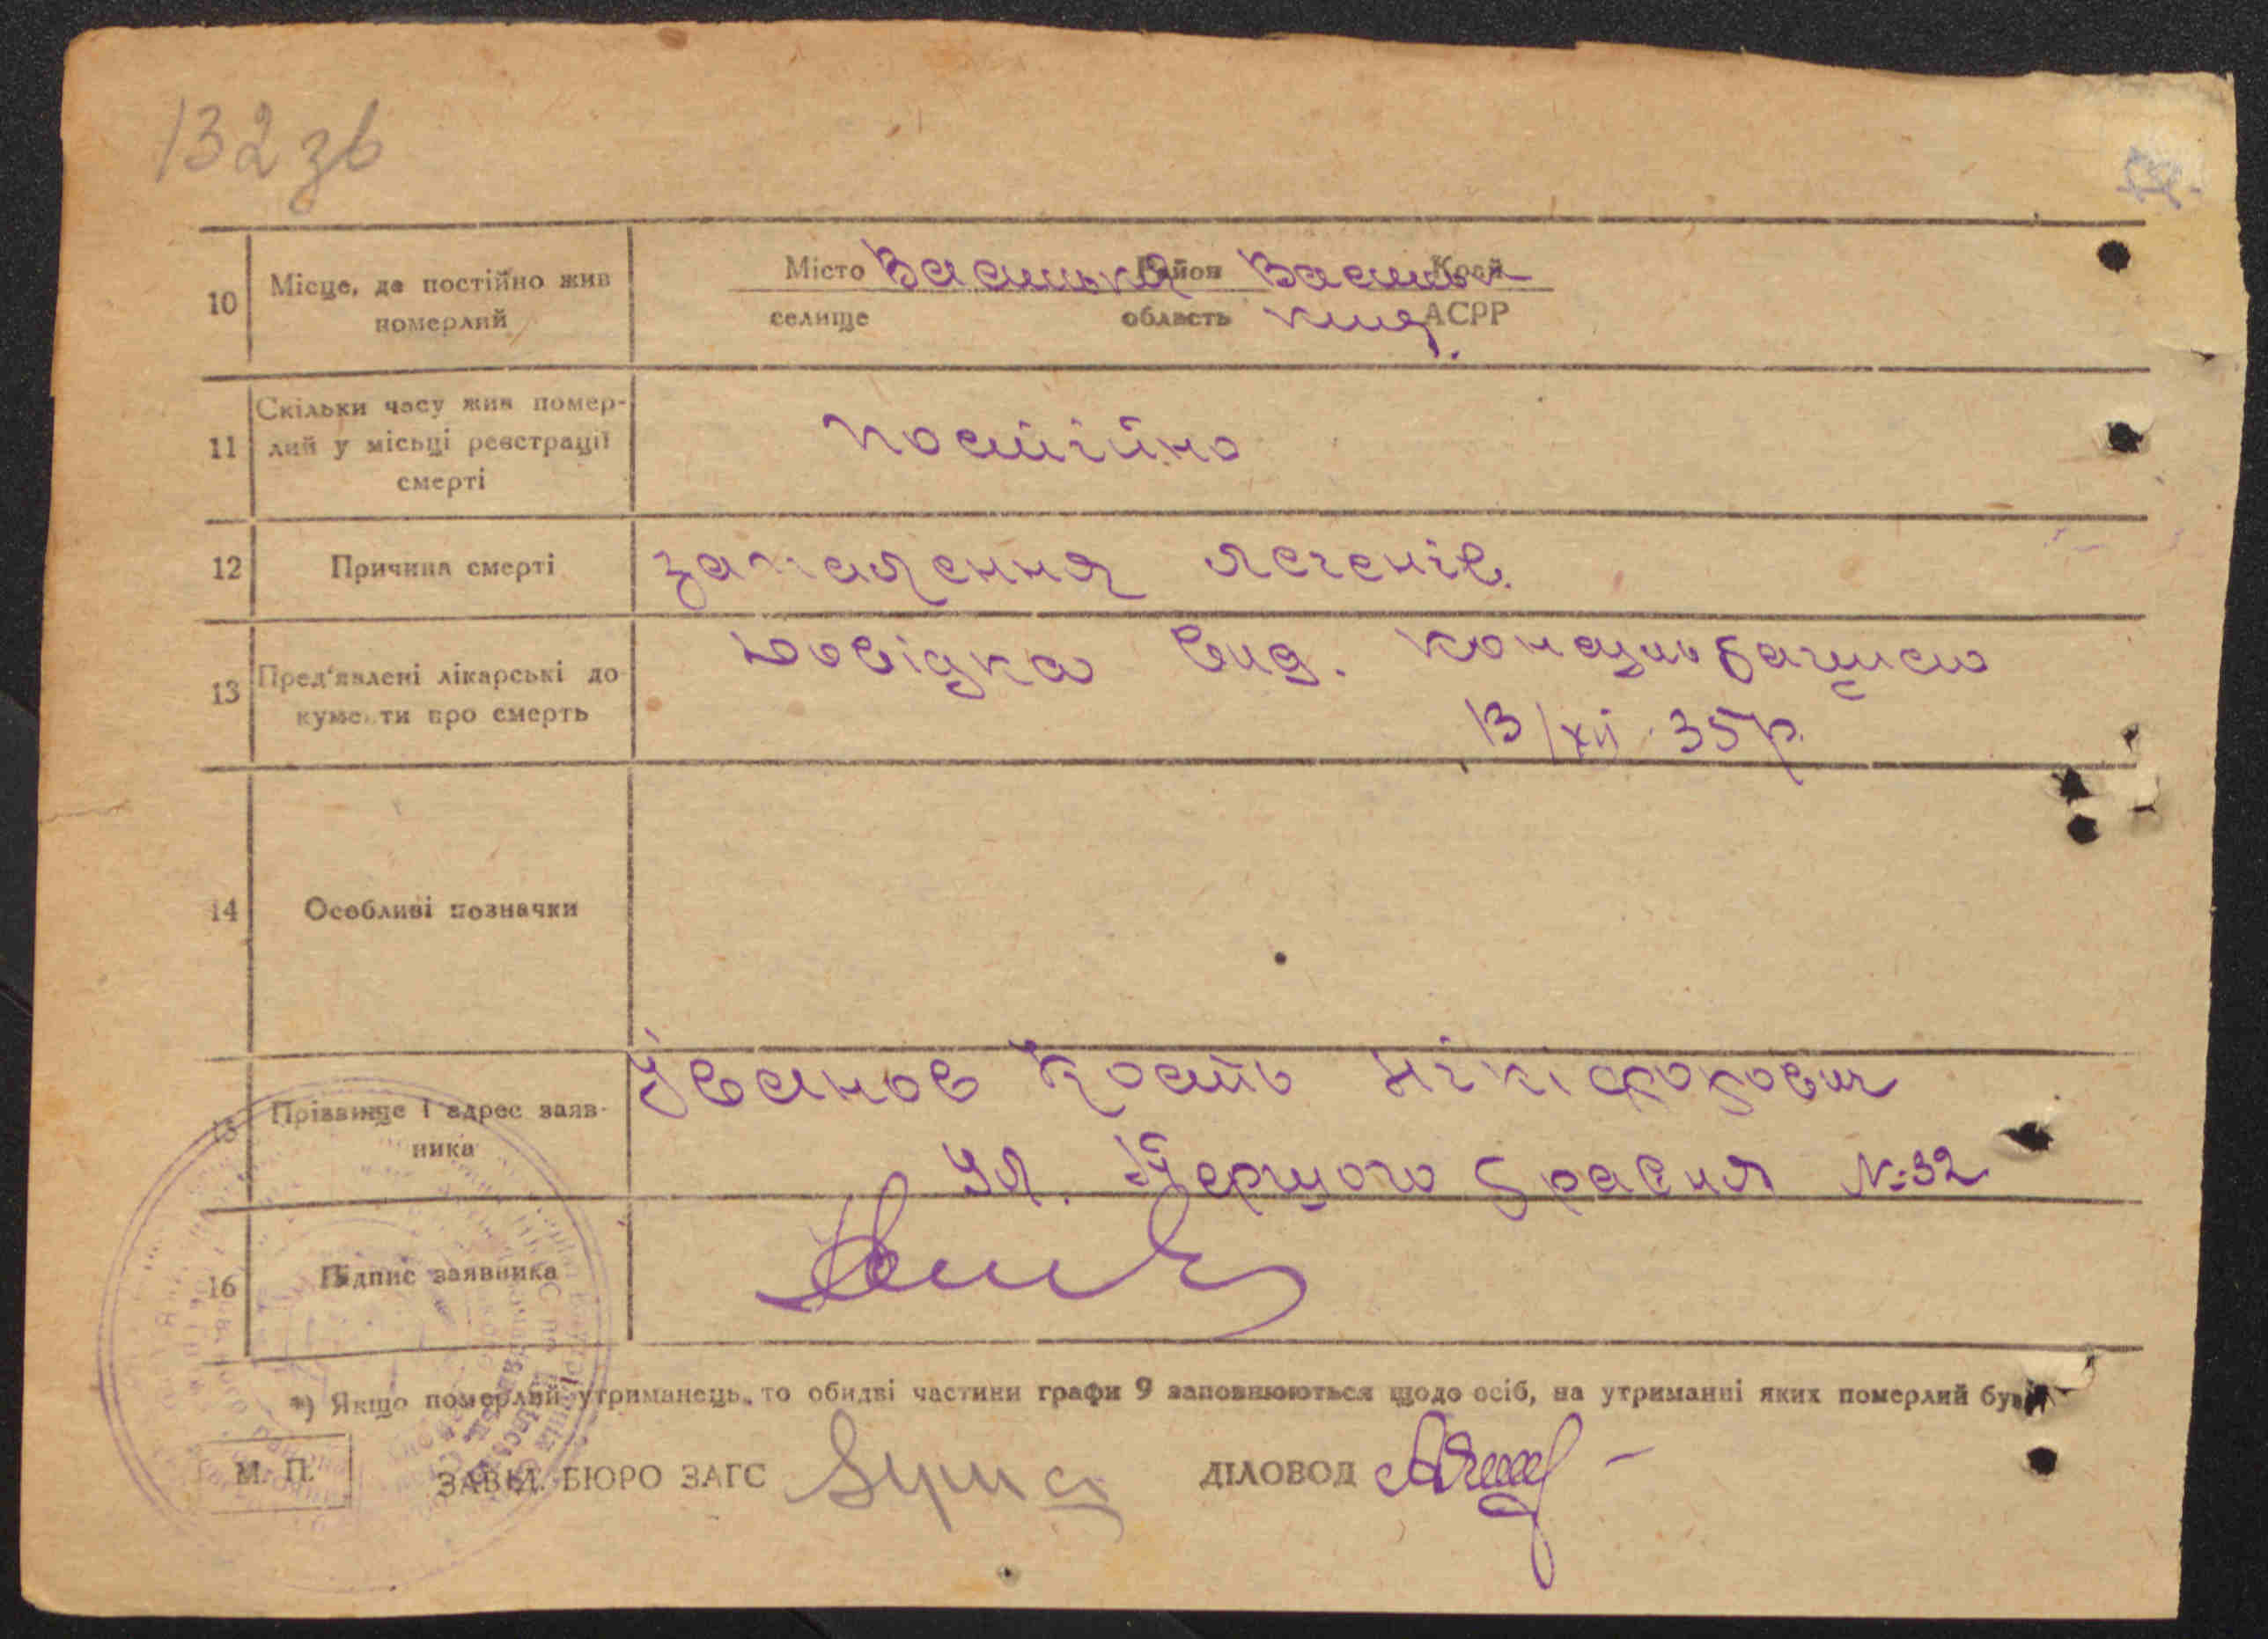 132 зв
10 Місце, де постійно жив Місто Район Край
померлий селище область АСРР
11 Скільки часу жив помер-
лий у місьці реєстрації
смерті
постійно
12 Причина смерті запалення легенів.
13 Пред'явлені лікарські до
кументи про смерть
Довідка вид.
13/XII 35 р.
14 Особливі позначки
15 Прізвище і адрес заяв-
ника
Іванов Кость Нікіфорович
Ул. Першого Травня №32
16 Підпис заявника
*) Якщо померлий утриманець, то обидві частини графи 9 заповнюються щодо осіб, на утриманні яких померлий був
М. П. ЗАВІД. БЮРО ЗАГС ДІЛОВОД